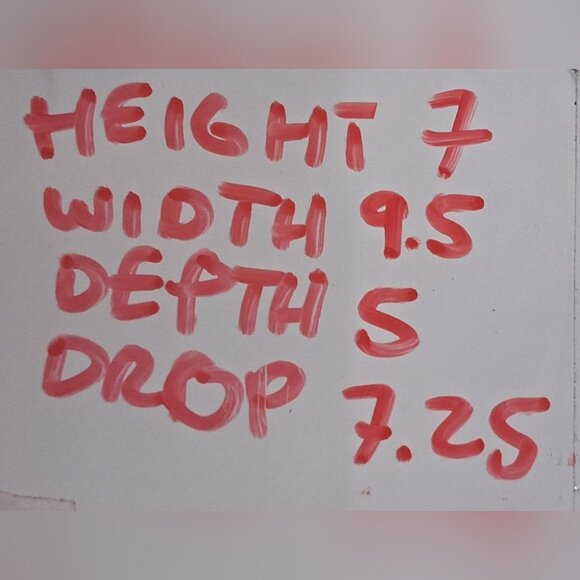 HEIGHT 7
WIDTH 9.5
DEPTH 5
DROP 7.25